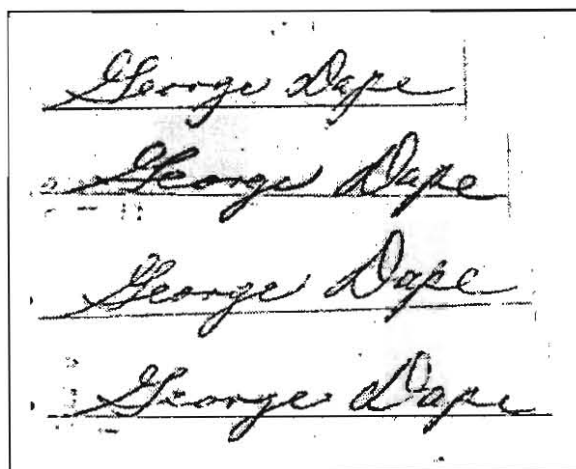 George Dape
George Dape
George Dape
George Dape